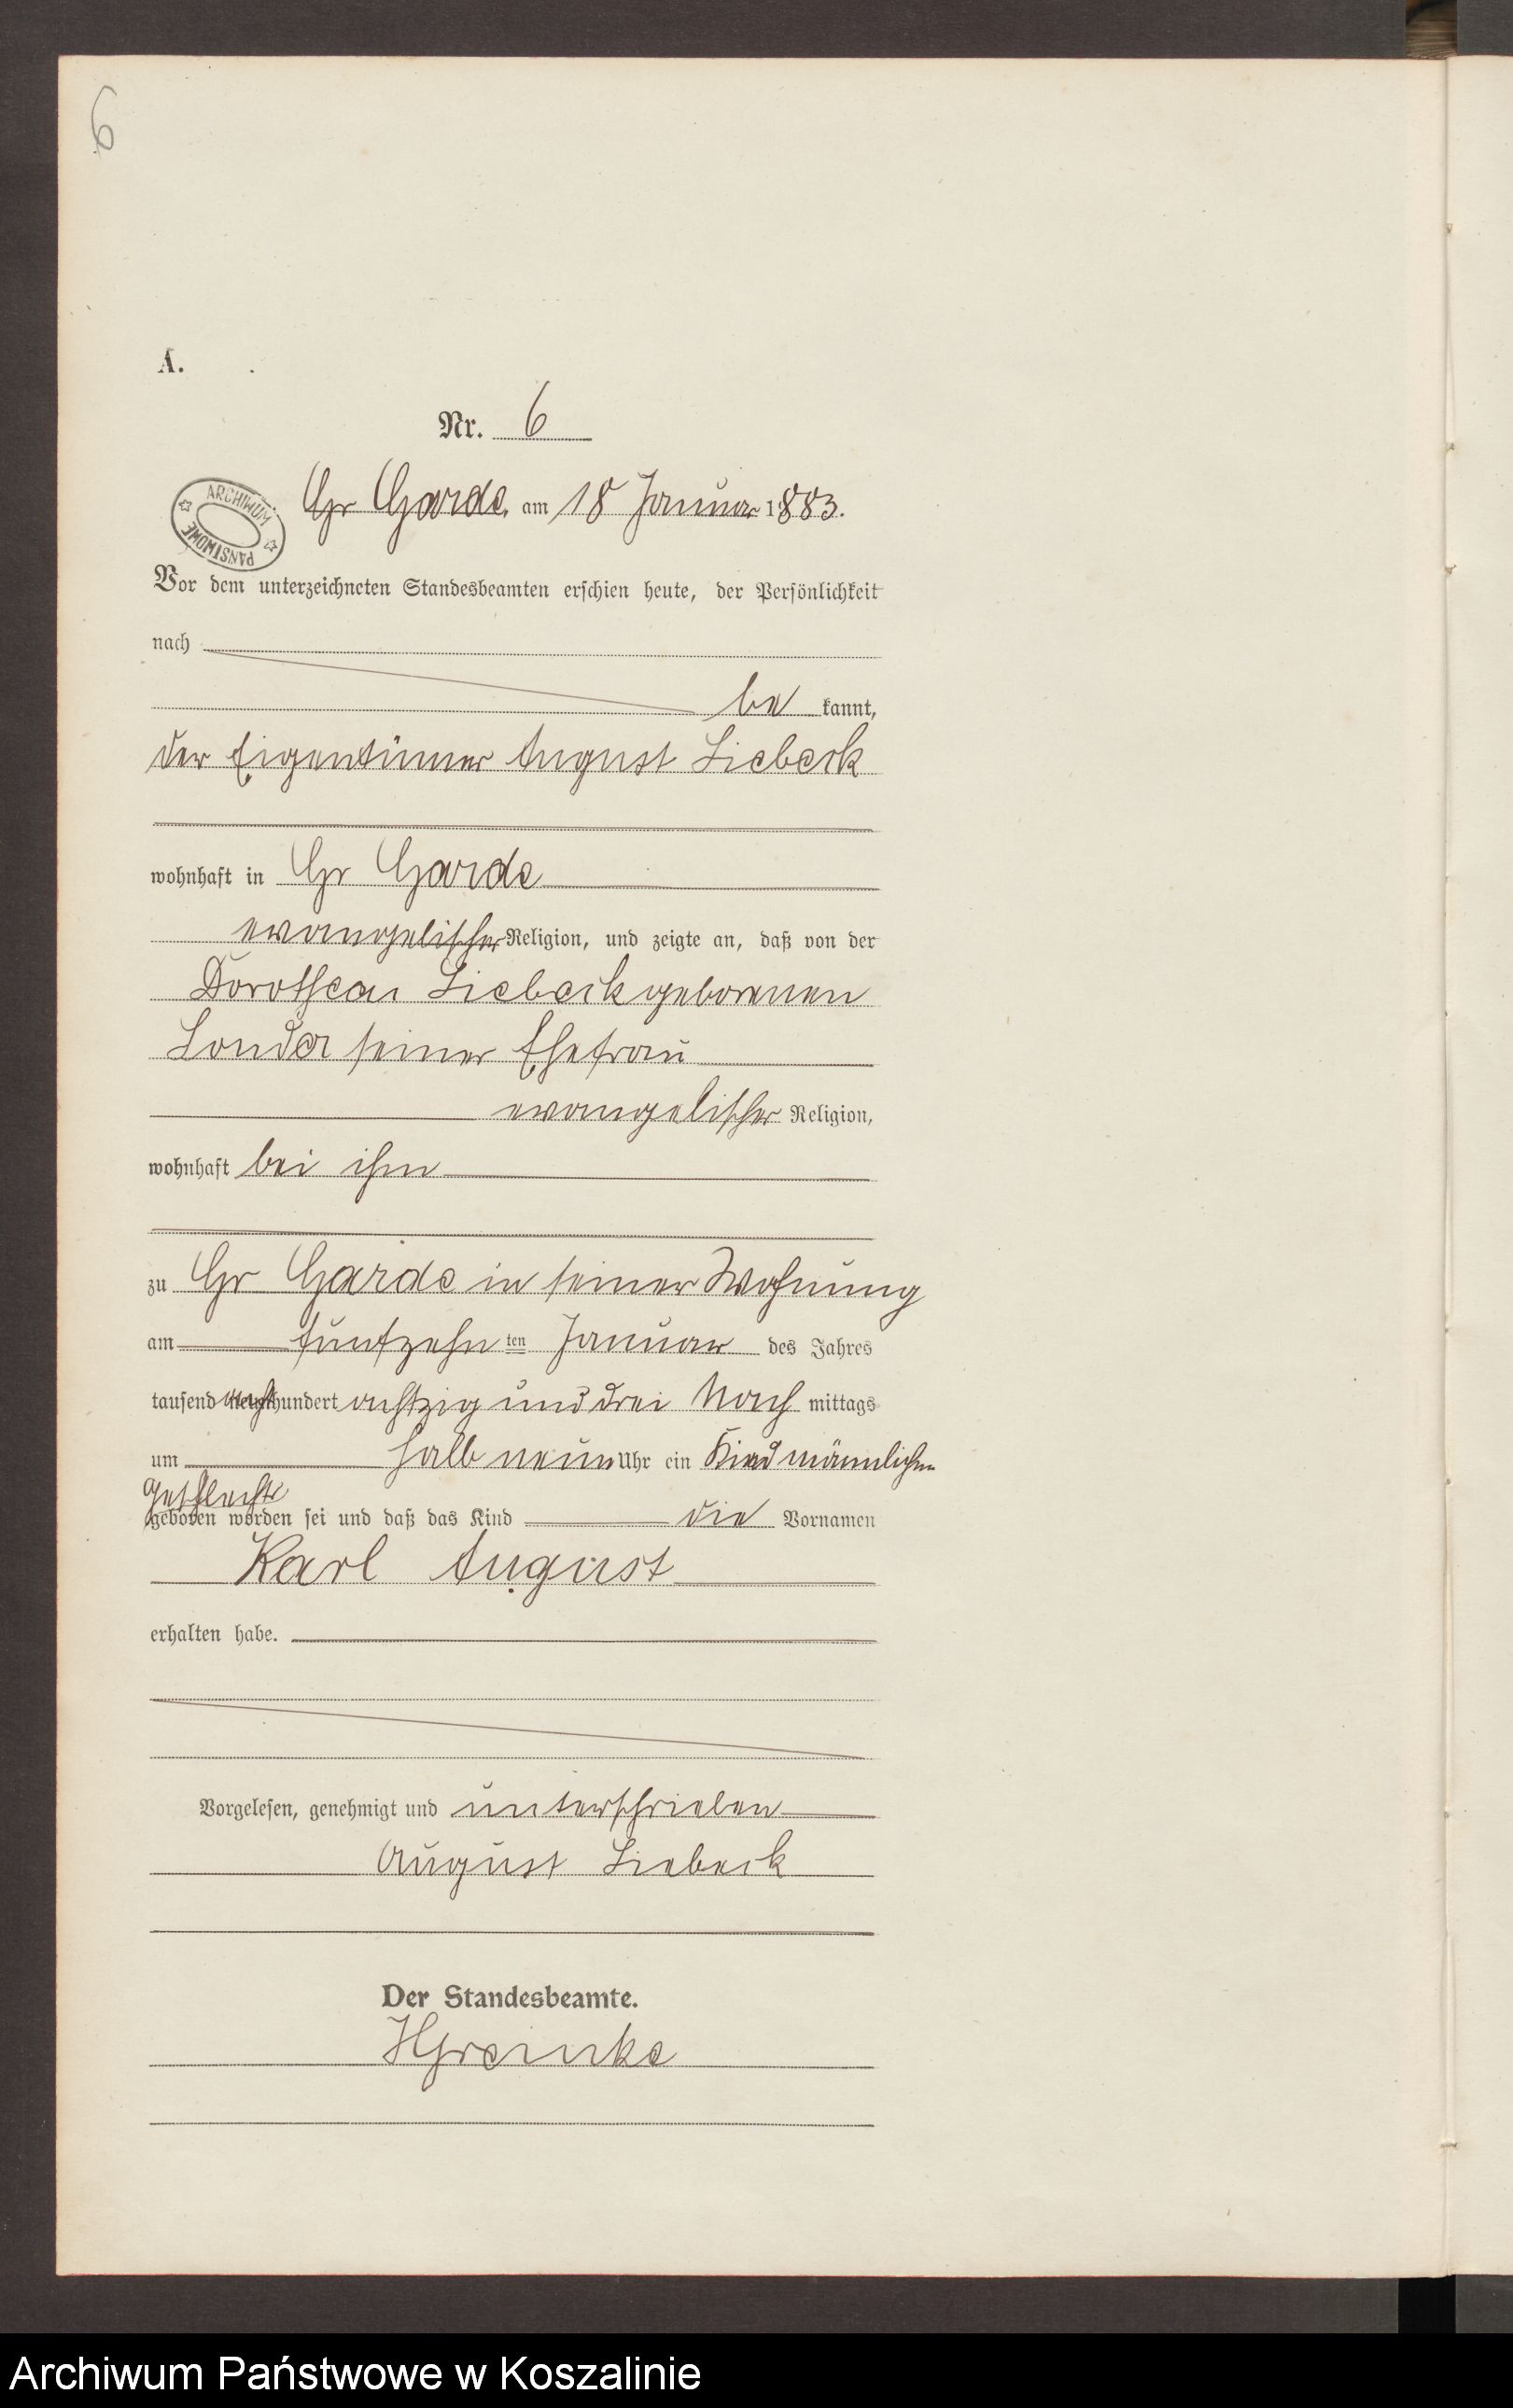 6
A.
Nr. 6
ARCHIWUM PAŃSTWOWE
Gr Garde, am 18 Januar 1883.
Vor dem unterzeichneten Standesbeamten erschien heute, der Persönlichkeit
nach
be kannt,
der Eigentümer August Liebeck
wohnhaft in Gr Garde
evangelischer Religion, und zeigte an, daß von der
Dorothea Liebeck geborenen
seiner Ehefrau
evangelischer Religion,
wohnhaft bei ihm
zu Gr Garde in seiner Wohnung
am fünfzehn ten Januar des Jahres
tausend acht hundert achtzig und drei Nach mittags
um halb neun Uhr ein Kind männlichen
Geschlechts
geboren worden sei und daß das Kind die Vornamen
Karl August
erhalten habe.
Vorgelesen, genehmigt und unterschrieben
August Liebeck
Der Standesbeamte.
Archiwum Państwowe w Koszalinie